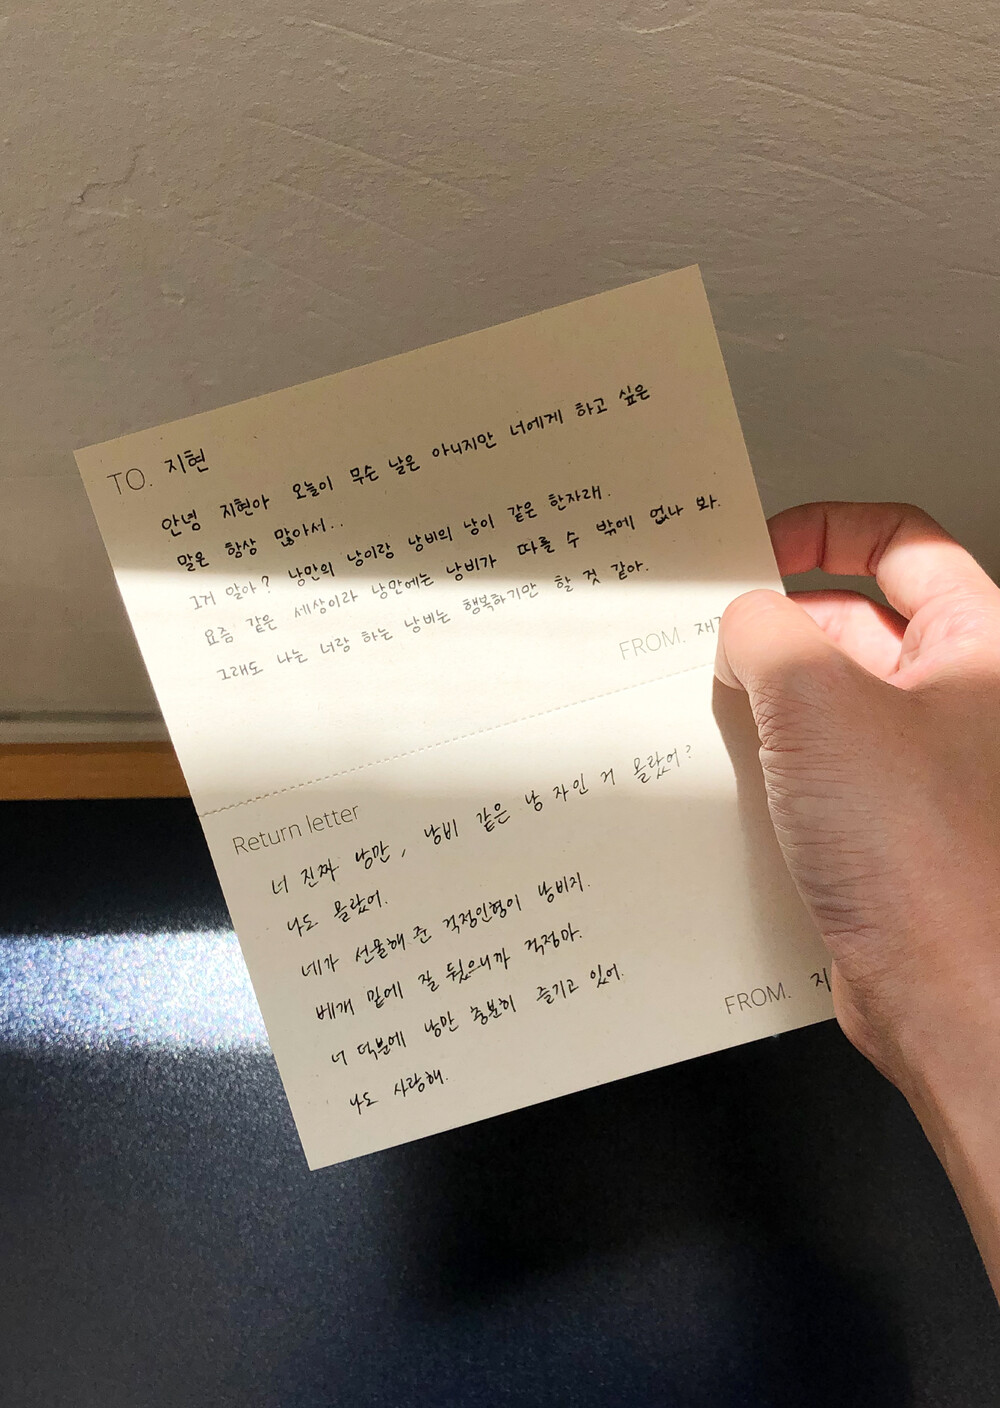 TO. 지현
안녕 지현아 오늘이 무슨 날은 아니지만 너에게 하고 싶은
말은 항상 많아서..
그거 알아? 낭만의 낭이랑 낭비의 낭이 같은 한자래.
요즘 같은 세상이라 낭만에는 낭비가 따를 수 밖에 없나 봐.
그래도 나는 너랑 하는 낭비는 행복하기만 할 것 같아.
FROM. 재
Return letter
너 진짜 낭만, 낭비 같은 낭 자인 거 몰랐어?
나도 몰랐어.
네가 선물해 준 걱정인형이 낭비지.
베개 밑에 잘 뒀으니까 걱정마.
너 덕분에 낭만 충분히 즐기고 있어.
나도 사랑해.
FROM. 지